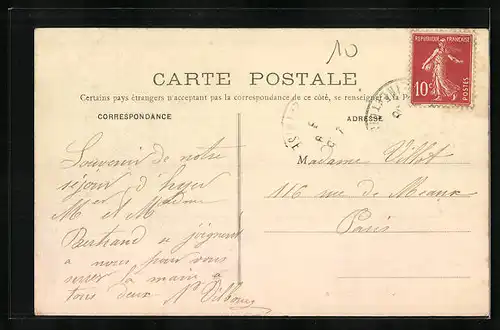 10
REPUBLIQUE FRANÇAISE
10c
POSTES
CARTE POSTALE
Certains pays étrangers n'acceptant pas la correspondance de ce côté, se renseigner à la
CORRESPONDANCE
ADRESSE
Souvenir de notre
séjour d'hyer
Mr et Madame
Bertrand se joignent
à nous pour vous
serrer la main à
tous deux.
Madame Villet
116 rue de Meaux
Paris